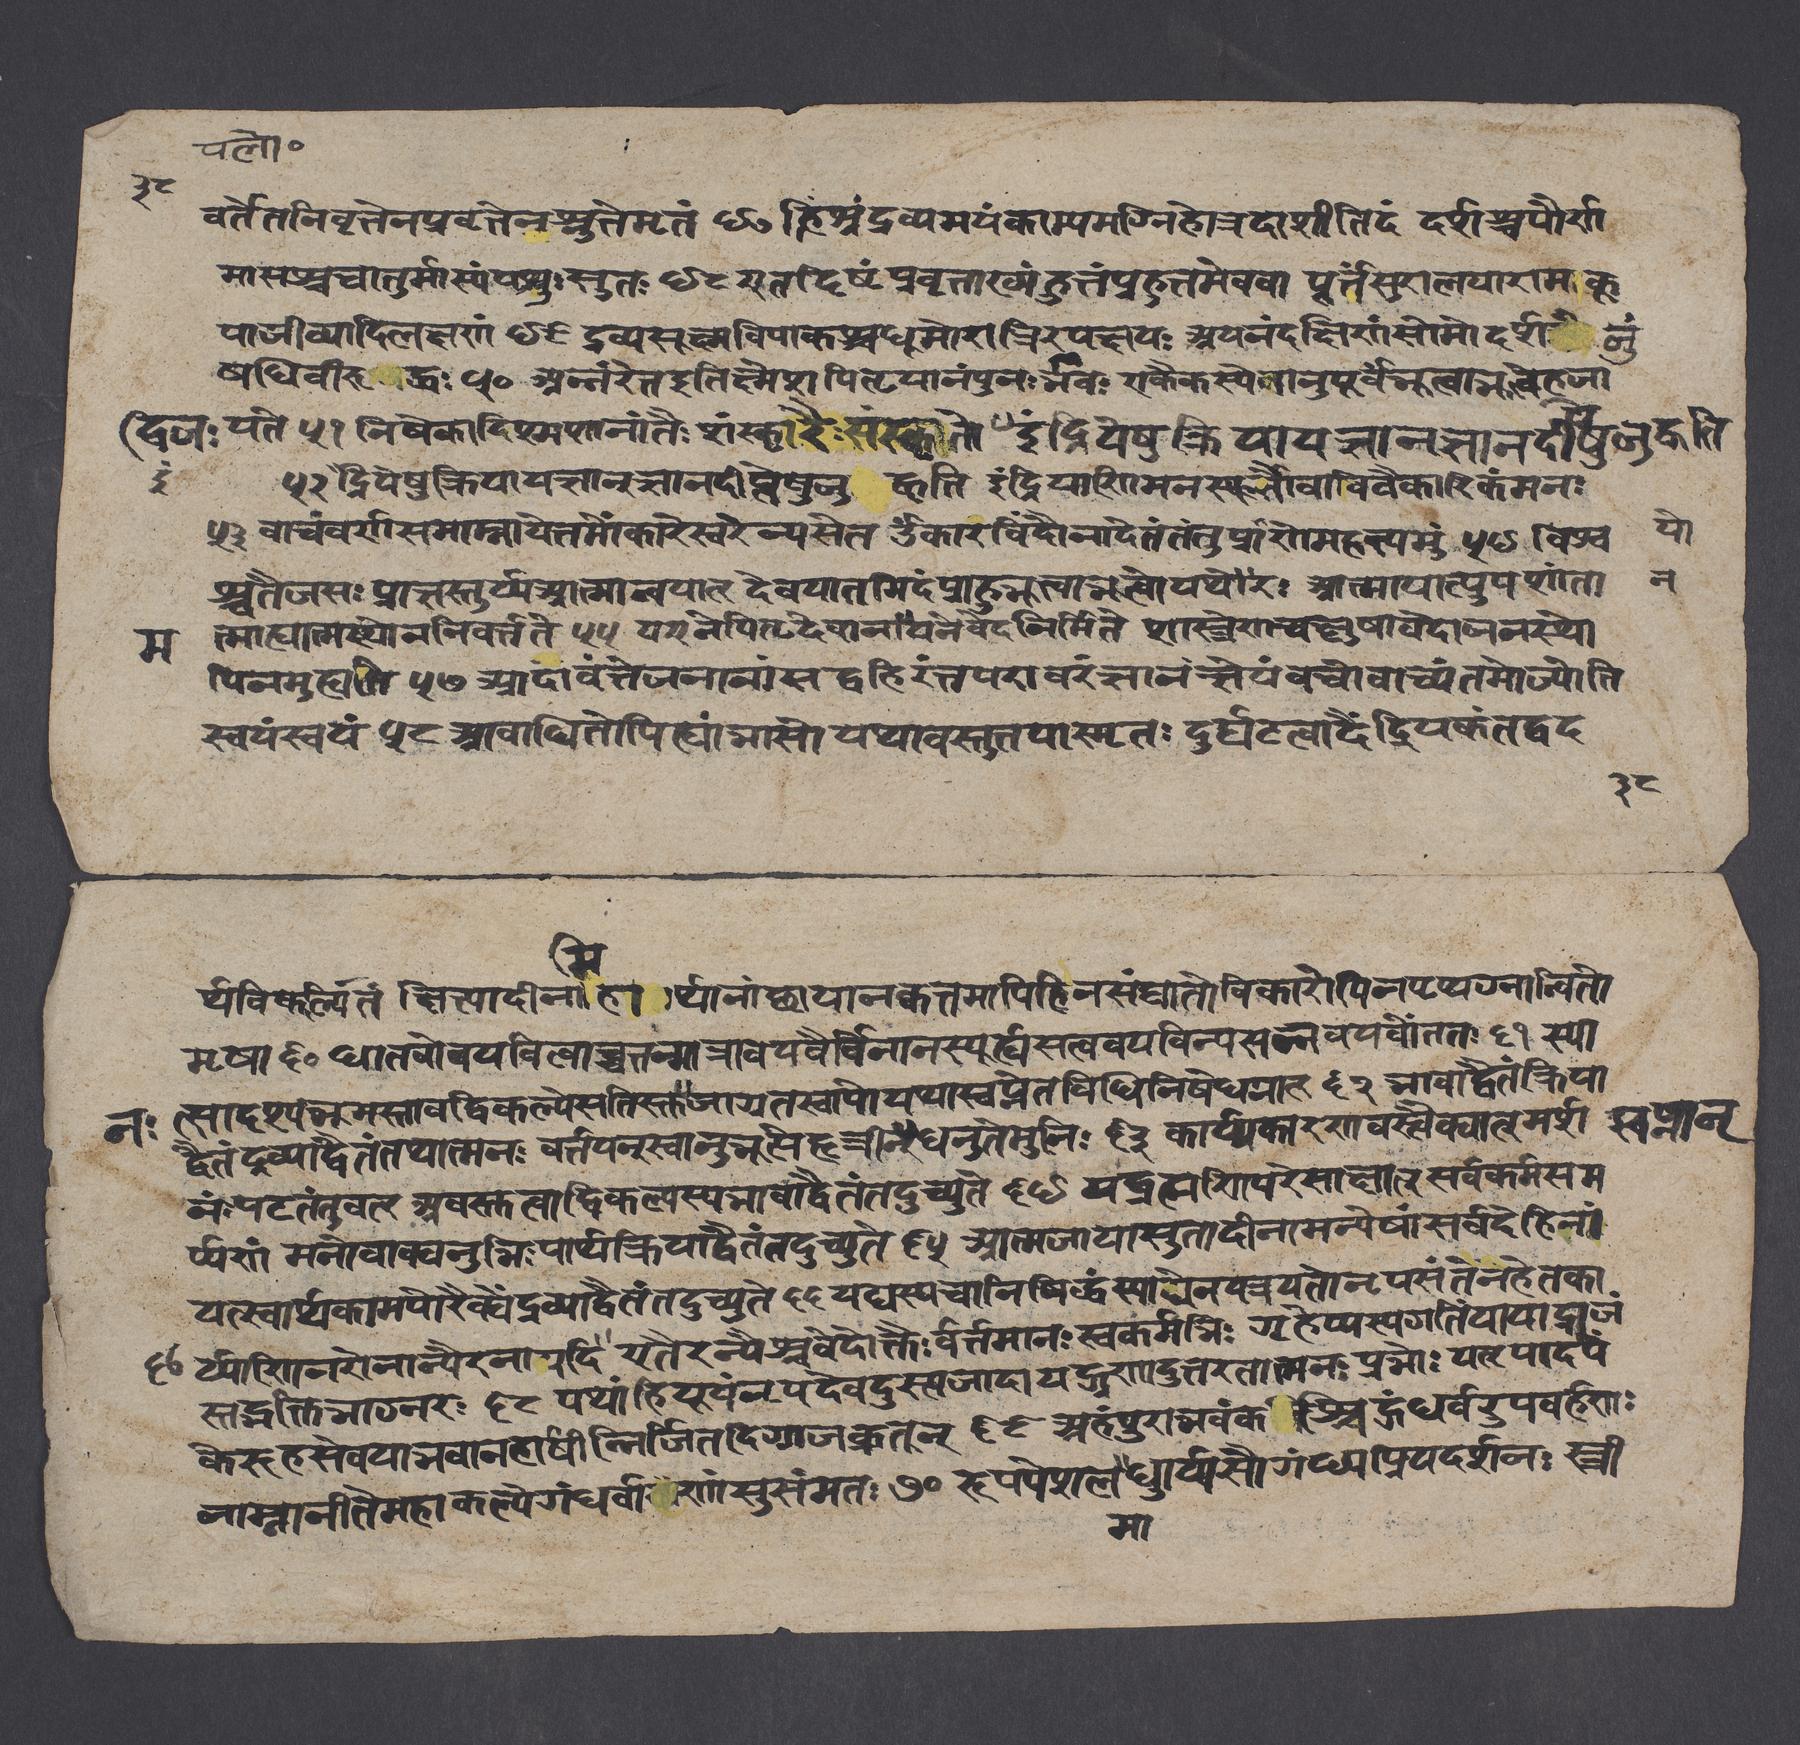 पलो॰
३८
वर्तेतनिवृत्तेनप्रवृत्तेनश्नुतेमृतं ४७ हिंस्रंद्रव्यमयंकाम्यमग्निहोत्रदाशांतिदं दर्शश्चपौर्ण
मासश्चचातुर्मास्यंपशुःसुतः ४८ एतदिष्टंप्रवृत्ताख्यंहुतंप्रहुतमेववा पूर्त्तंसुरालयारामकू
पाजीव्यादिलक्षणं ४९ द्रव्यसूक्ष्मविपाकश्चधूमोरात्रिरपक्षयः अयनंदक्षिणंसोमोदर्श नुं
षधिवीरु ५० अन्नंरेतइतिक्ष्मेशपितृयानंपुनःर्भवः एकैकस्येनानुपूर्वंभूत्वाभूत्वेहजा
द्विजः यते ५१ निषेकादिश्मशानांतैः शंस्कारैःसंस्कृतो इंद्रियेषुक्रियायज्ञानज्ञानदीपेषुजुह्वति
इं ५२ द्रियेषुक्रियायज्ञानज्ञानदीपेषुजु ह्वति इंद्रियाणिमनस्यूर्मौवाचिवैकारिकंमनः
५३ वाचंवर्णसमाम्नायेतमोंकारेस्वरेन्यसेत उँकारंविंदौनादेतंतंतुप्राणेमहत्यमुं ५४ विश्व यो
श्चतैजसः प्राज्ञस्तुर्य्यआत्मा देवयानमिदंप्राहुभूत्वाभूत्वा आत्मायाज्युपशांता न
म त्माह्यात्मस्थोननिवर्त्तते ५५ यएनेपितृदेवानांयनेवेदनिर्मिते शास्त्रेणचक्षुषावेदाजनस्थो
पिनमुह्यति ५७ आदावंत्तेजनानांसद्वहिरंत्तपरावरंज्ञानंज्ञेयंवचोवाच्यंतमोज्योति
स्वयंस्वयं ५८ आवाधितोपिह्यांभासो यथावस्तुतयास्मृतः दुर्घटत्वादैंद्रियकंतद्वद
३८
मि
र्थविकल्पितं क्षित्यादीना र्थानांछायानकतमापिहिनसंघातोविकारोपिनपृथग्नान्वितो
मृषा ६० धातवोवयवित्वाच्चतन्मात्रावयवैर्विनानस्युर्ह्यसत्यवयविन्यसन्नवयवोंततः ६१ स्या
नः त्सादृश्यभ्रमस्तावद्विकल्पेसति जाग्रतस्वापौयथास्वप्नेतविधिनिषेधतात् ६२ भावाद्वैतंक्रिया
द्वैतंद्रव्याद्वैतंतथात्मनः वर्त्तयन्स्वानुभूत्येहत्रीन् धनुतेमुनिः ६३ कार्य्यकारणवस्त्वैक्यात्मर्श स्वप्नान्
नंःपटतंतुवत् अवस्तुत्वाद्विकल्पस्यभावाद्वैतंतदुच्युते ६४ यद्ब्रह्मणिपरेसाक्षात् सर्वकर्मसम
र्प्पणं मनोवाक्तनुभिःपार्थक्रियाद्वैतंतदुच्युते ६५ आत्मजायासुतादीनामन्येषांसर्वदेहिनां
यत्स्वार्थकामयोरैक्यंद्रव्याद्वैतंतदुच्युते ६६ यद्यस्यचानिषिद्धंस्याद्येनयत्रयतोनृपसतेनेहेतका
६७ र्य्याणिनरोनान्यैरनापदि एतैरन्यैश्चवेदोक्तैःर्वर्त्तमानःस्वकर्मभिः गृहेप्यस्यगतिंयायाद्राजं
स्तद्भक्तिभाङनरः ६८ यथांहियूयंनृपदेवदुस्त्यजादा यद्गणादुत्तरतात्मनःप्रभोः यत्पादपं
केरूहसेवयाभवानहार्षीन्निर्जितदिग्गजक्रतून् ६९ अहंपुराभवंक श्चिद्गंधर्वउपवर्हणः
नाम्नातीतेमहाकल्पेगंधर्वा णांसुसंमतः ७० रूपपेशल धुर्य्यसौगंध्यप्रियदर्शनः स्त्री
मा